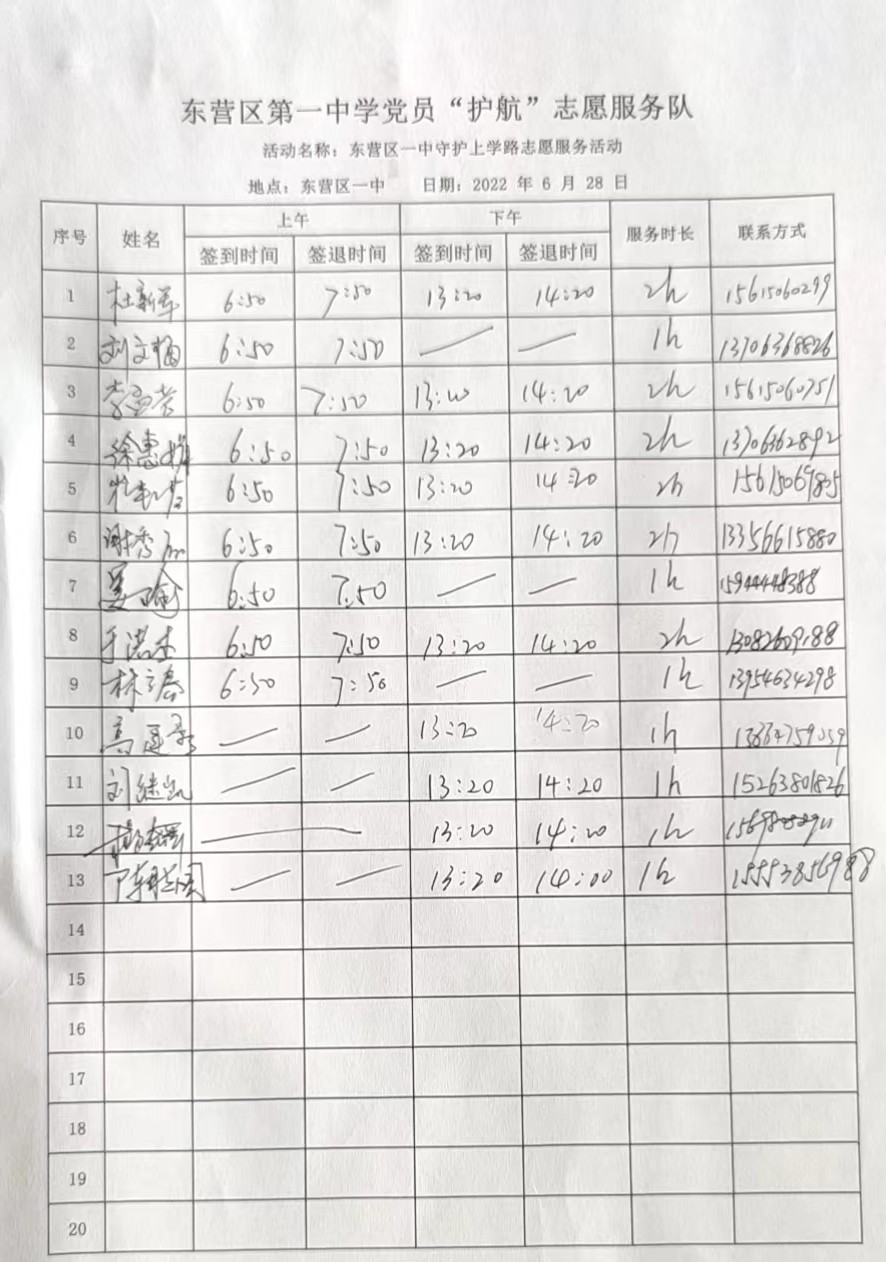 东营区第一中学党员“护航”志愿服务队
活动名称：东营区一中守护上学路志愿服务活动
地点：东营区一中 日期：2022 年 6 月 28 日
序号 姓名 上午 下午 服务时长 联系方式
签到时间 签退时间 签到时间 签退时间
1 杜新军 6:50 7:50 13:20 14:20 2h 15615060299
2 刘文 6:50 7:50 — — 1h 13706368826
3 李 6:50 7:50 14:20 2h 15615060751
4 徐惠 6:50 7:50 13:20 14:20 2h 13706362892
5 6:50 7:50 13:20 14:20 2h 15615069825
6 谢秀 6:50 7:50 13:20 14:20 2h 13356615880
7 6:50 7:50 — — 1h
8 于洪 6:50 7:50 13:20 14:20 2h 13082609188
9 林 6:50 7:50 — — 1h 13954634298
10 高 — — 13:20 14:20 1h
11 刘继凯 — — 13:20 14:20 1h 15263801826
12 — 13:20 14:20 1h
13 — — 13:20 14:00 1h
14
15
16
17
18
19
20